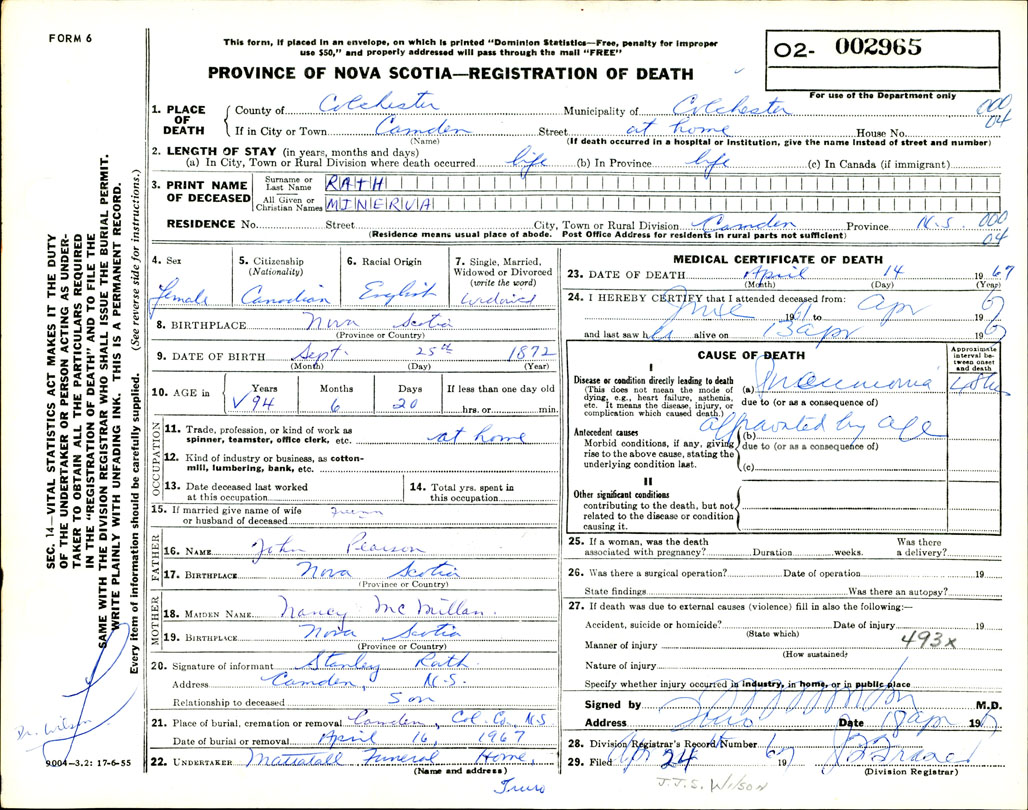 FORM 6
This form, if placed in an envelope, on which is printed "Dominion Statistics—Free, penalty for improper
use $50," and properly addressed will pass through the mail "FREE"
O2- 002965
PROVINCE OF NOVA SCOTIA—REGISTRATION OF DEATH
For use of the Department only
1. PLACE OF DEATH County of Colchester Municipality of Colchester 000
04
If in City or Town Camden Street at home House No.
(Name) (If death occurred in a hospital or institution, give the name instead of street and number)
2. LENGTH OF STAY (in years, months and days)
(a) In City, Town or Rural Division where death occurred life (b) In Province life (c) In Canada (if immigrant)
3. PRINT NAME OF DECEASED
Surname or Last Name RATH
All Given or Christian Names MINERVA
RESIDENCE No. Street City, Town or Rural Division Camden Province N.S. 000
04
(Residence means usual place of abode. Post Office Address for residents in rural parts not sufficient)
4. Sex Female
5. Citizenship (Nationality) Canadian
6. Racial Origin English
7. Single, Married, Widowed or Divorced (write the word) Widowed
8. BIRTHPLACE Nova Scotia
(Province or Country)
9. DATE OF BIRTH Sept. 25th 1872
(Month) (Day) (Year)
10. AGE in Years Months Days If less than one day old
94 6 20 hrs. or min.
OCCUPATION
11. Trade, profession, or kind of work as
spinner, teamster, office clerk, etc. at home
12. Kind of industry or business, as cotton-
mill, lumbering, bank, etc.
13. Date deceased last worked
at this occupation
14. Total yrs. spent in
this occupation
15. If married give name of wife
or husband of deceased
FATHER
16. NAME John Pearson
17. BIRTHPLACE Nova Scotia
(Province or Country)
MOTHER
18. MAIDEN NAME Nancy McMillan.
19. BIRTHPLACE Nova Scotia
(Province or Country)
20. Signature of informant Stanley Rath.
Address Camden, N.S.
Relationship to deceased Son
21. Place of burial, cremation or removal Camden, Col. Co. N.S.
Date of burial or removal April 16, 1967
22. UNDERTAKER Mattatall Funeral Home,
(Name and address)
Truro
MEDICAL CERTIFICATE OF DEATH
23. DATE OF DEATH April 14 1967
(Month) (Day) (Year)
24. I HEREBY CERTIFY that I attended deceased from:
June 1961 to Apr 1967
and last saw h alive on 13 apr 1967
CAUSE OF DEATH
Approximate
interval be-
tween onset
and death
I
Disease or condition directly leading to death
(This does not mean the mode of
dying, e.g., heart failure, asthenia,
etc. It means the disease, injury, or
complication which caused death.)
(a) Pneumonia
due to (or as a consequence of)
Antecedent causes
Morbid conditions, if any, giving
rise to the above cause, stating the
underlying condition last.
(b) by age
due to (or as a consequence of)
(c)
II
Other significant conditions
contributing to the death, but not
related to the disease or condition
causing it.
25. If a woman, was the death
associated with pregnancy? Duration weeks. Was there
a delivery?
26. Was there a surgical operation? Date of operation 19
State findings Was there an autopsy?
27. If death was due to external causes (violence) fill in also the following:—
Accident, suicide or homicide? Date of injury 19
(State which)
Manner of injury 493x
(How sustained)
Nature of injury
Specify whether injury occurred in industry, in home, or in public place
Signed by M.D.
Address Truro Date 18 apr 1967
28. Division Registrar's Record Number
29. Filed Apr 24 1967
(Division Registrar)
J.J.S. WILSON
SEC. 14—VITAL STATISTICS ACT MAKES IT THE DUTY
OF THE UNDERTAKER OR PERSON ACTING AS UNDER-
TAKER TO OBTAIN ALL THE PARTICULARS REQUIRED
IN THE "REGISTRATION OF DEATH" AND TO FILE THE
SAME WITH THE DIVISION REGISTRAR WHO SHALL ISSUE THE BURIAL PERMIT.
WRITE PLAINLY WITH UNFADING INK. THIS IS A PERMANENT RECORD.
Every item of information should be carefully supplied. (See reverse side for instructions.)
Dr. Wilson
9004—3.2: 17-6-55